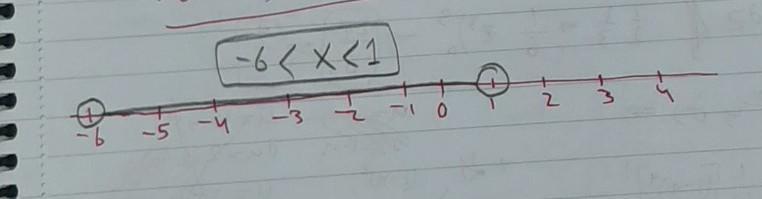 -6 < x < 1
-6 -5 -4 -3 -2 -1 0 1 2 3 4